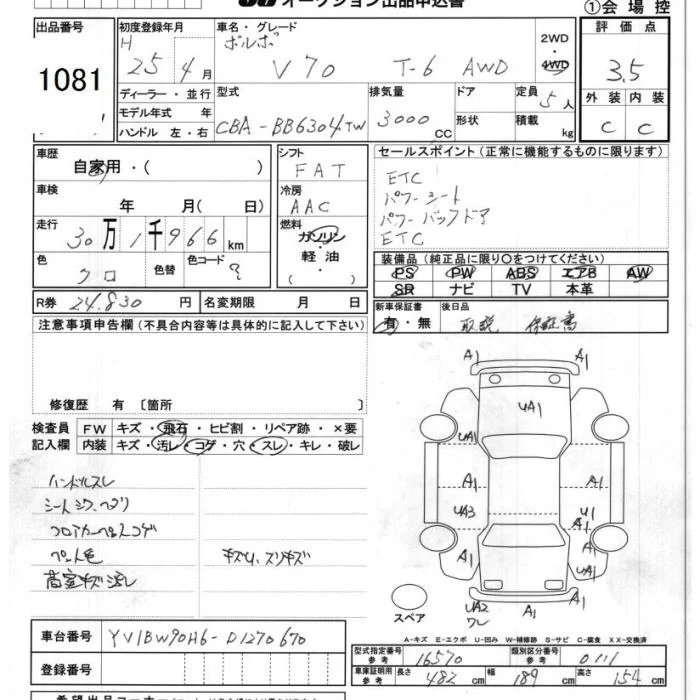 オークション出品申込書
①会場控
出品番号
1081
初度登録年月
H 25年4月
車名・グレード
ボルボ
V70 T-6 AWD
2WD
4WD
評価点
3.5
外装 内装
C C
ディーラー・並行
モデル年式 年
ハンドル 左・右
型式
CBA-BB6304TW
排気量
3000 CC
ドア
形状
定員
5人
積載
kg
車歴
自家用・( )
車検
年 月( 日)
走行
30万1千966km
色
クロ
色替
色コード
R券 24,830 円
名変期限 月 日
シフト
FAT
冷房
AAC
燃料
ガソリン
軽油
( ・ )
セールスポイント(正常に機能するものに限ります)
ETC
パワーシート
パワーバックドア
ETC
装備品(純正品に限り〇をつけてください)
PS PW ABS エアB AW
SR ナビ TV 本革
新車保証書
有・無
後日品
取説 保証書
注意事項申告欄(不具合内容等は具体的に記入して下さい)
修復歴 有 〔箇所 〕
検査員
記入欄
FW キズ・飛石・ヒビ割・リペア跡・×要
内装 キズ・汚レ・コゲ・穴・スレ・キレ・破レ
ハンドルスレ
シートシワ、ヘタリ
フロアカーペットコゲ
ペット毛
荷室キズ汚レ
キズU、スリキズ
A1
A1
A1
UA1
UA1
A1
A1
UA3
U1
A1
A1
A1
UA2
ワレ
A1
A1
スペア
A-キズ E-エクボ U-凹み W-補修跡 S-サビ C-腐食 XX-交換済
車台番号
YV1BW90H6-D1270670
登録番号
型式指定番号
参考
16570
類別区分番号
参考
0111
車庫証明用
参考
長さ 482 cm
幅 189 cm
高さ 154 cm
希望出品コーナー